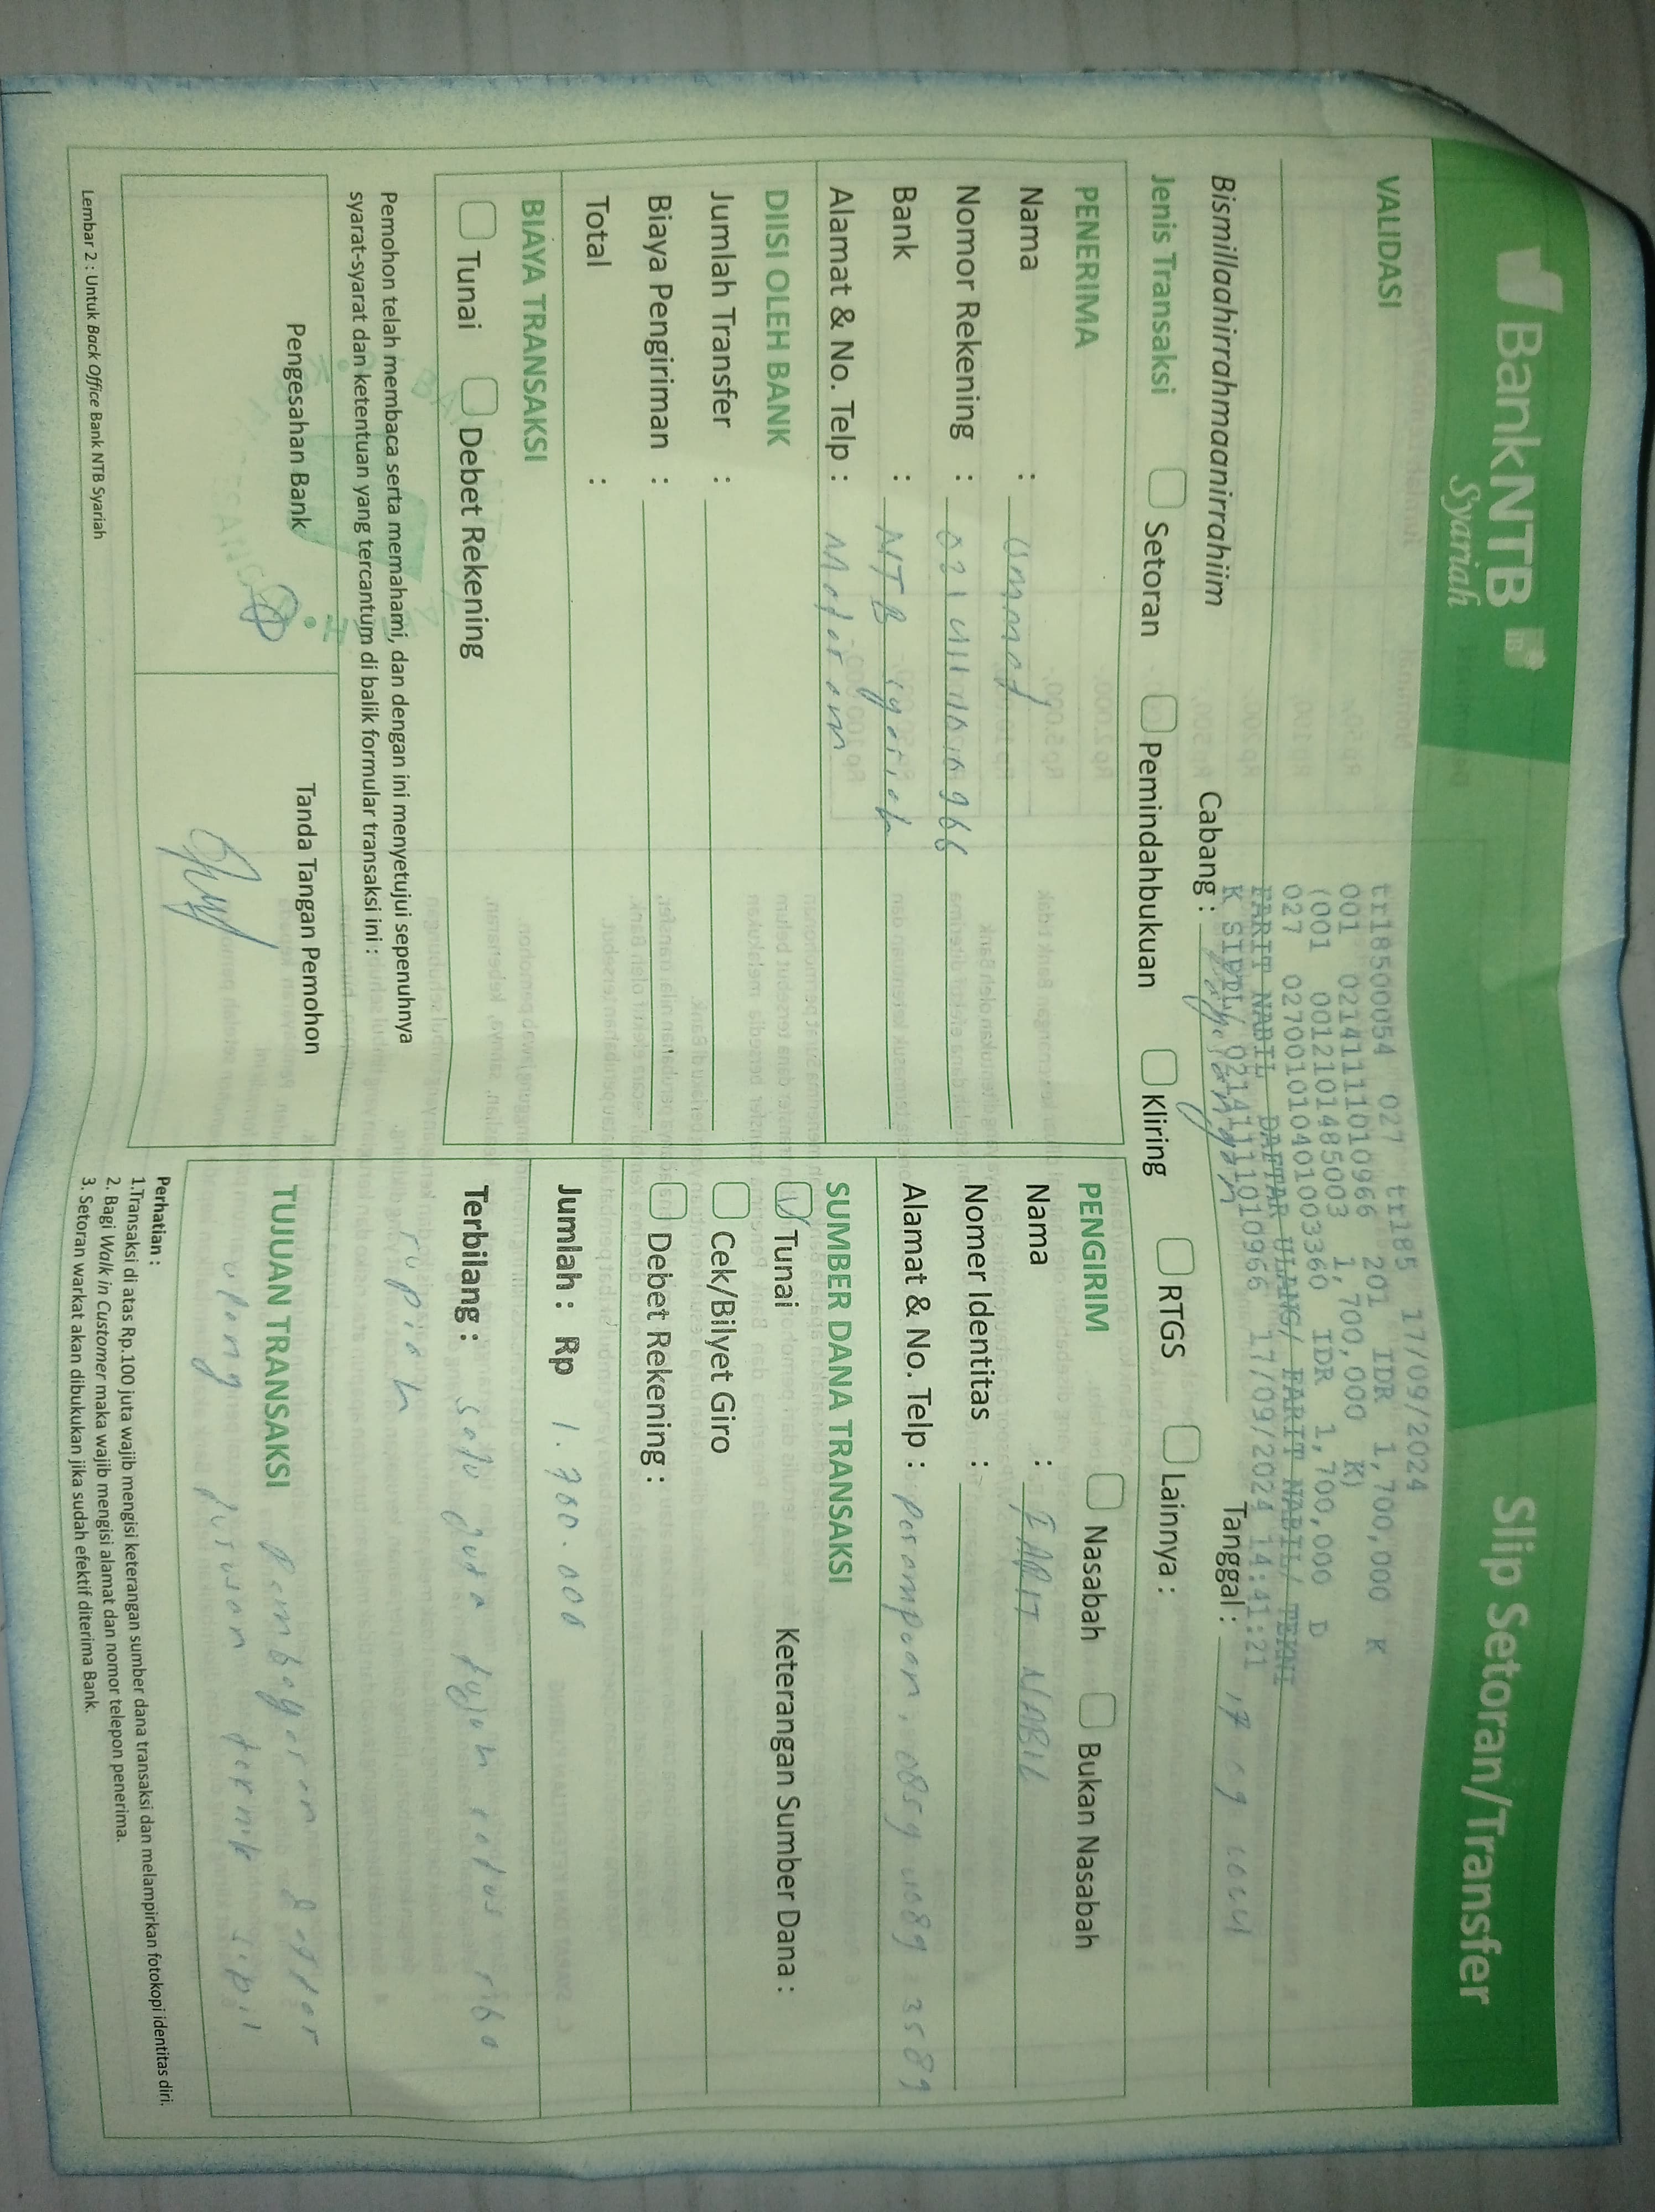 BankNTB
Syariah
Slip Setoran/Transfer
VALIDASI
17/09/2024
tr18500054 027 tr185
001 0214111101010966 201 IDR 1,700,000 K
(001 0012101485003 1,700,000 K)
027 0270010104010033360 IDR 1,700,000 D
FARIT NABIL DAFTAR ULANG/ FARIT NABIL/ TEKNI
K SIPPL 0214111101010966 17/09/2024 14:41:21
Bismillaahirrahmaanirrahiim
Cabang :
Tanggal : 17 09 2024
Jenis Transaksi
Setoran
Pemindahbukuan
Kliring
RTGS
Lainnya :
PENERIMA
Nama : Ummat
Nomor Rekening :
Bank : NTB syariah
Alamat & No. Telp : Mataram
DIISI OLEH BANK
Jumlah Transfer :
Biaya Pengiriman :
Total :
BIAYA TRANSAKSI
Tunai
Debet Rekening
Pemohon telah membaca serta memahami, dan dengan ini menyetujui sepenuhnya
syarat-syarat dan ketentuan yang tercantum di balik formular transaksi ini :
Pengesahan Bank
Tanda Tangan Pemohon
Lembar 2 : Untuk Back Office Bank NTB Syariah
PENGIRIM
Nasabah
Bukan Nasabah
Nama : FARIT NABIL
Nomer Identitas :
Alamat & No. Telp :
SUMBER DANA TRANSAKSI
Tunai
Keterangan Sumber Dana :
Cek/Bilyet Giro
Debet Rekening :
Jumlah : Rp 1.700.000
Terbilang : satu juta tujuh ratus ribu
rupiah
TUJUAN TRANSAKSI
Pembayaran daftar
ulang jurusan teknik sipil
Perhatian :
1.Transaksi di atas Rp.100 juta wajib mengisi keterangan sumber dana transaksi dan melampirkan fotokopi identitas diri.
2. Bagi Walk in Customer maka wajib mengisi alamat dan nomor telepon penerima.
3. Setoran warkat akan dibukukan jika sudah efektif diterima Bank.